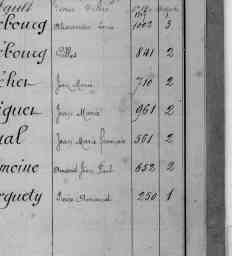 ebourg Alexandre Louis 1002 3
ebourg Gilles 841 2
cher Jean Marie 710 2
iguer Jean Marie 961 2
ual Jean Marie François 561 2
moine Amand Jean Paul 652 2
rguety Pierre 250 1